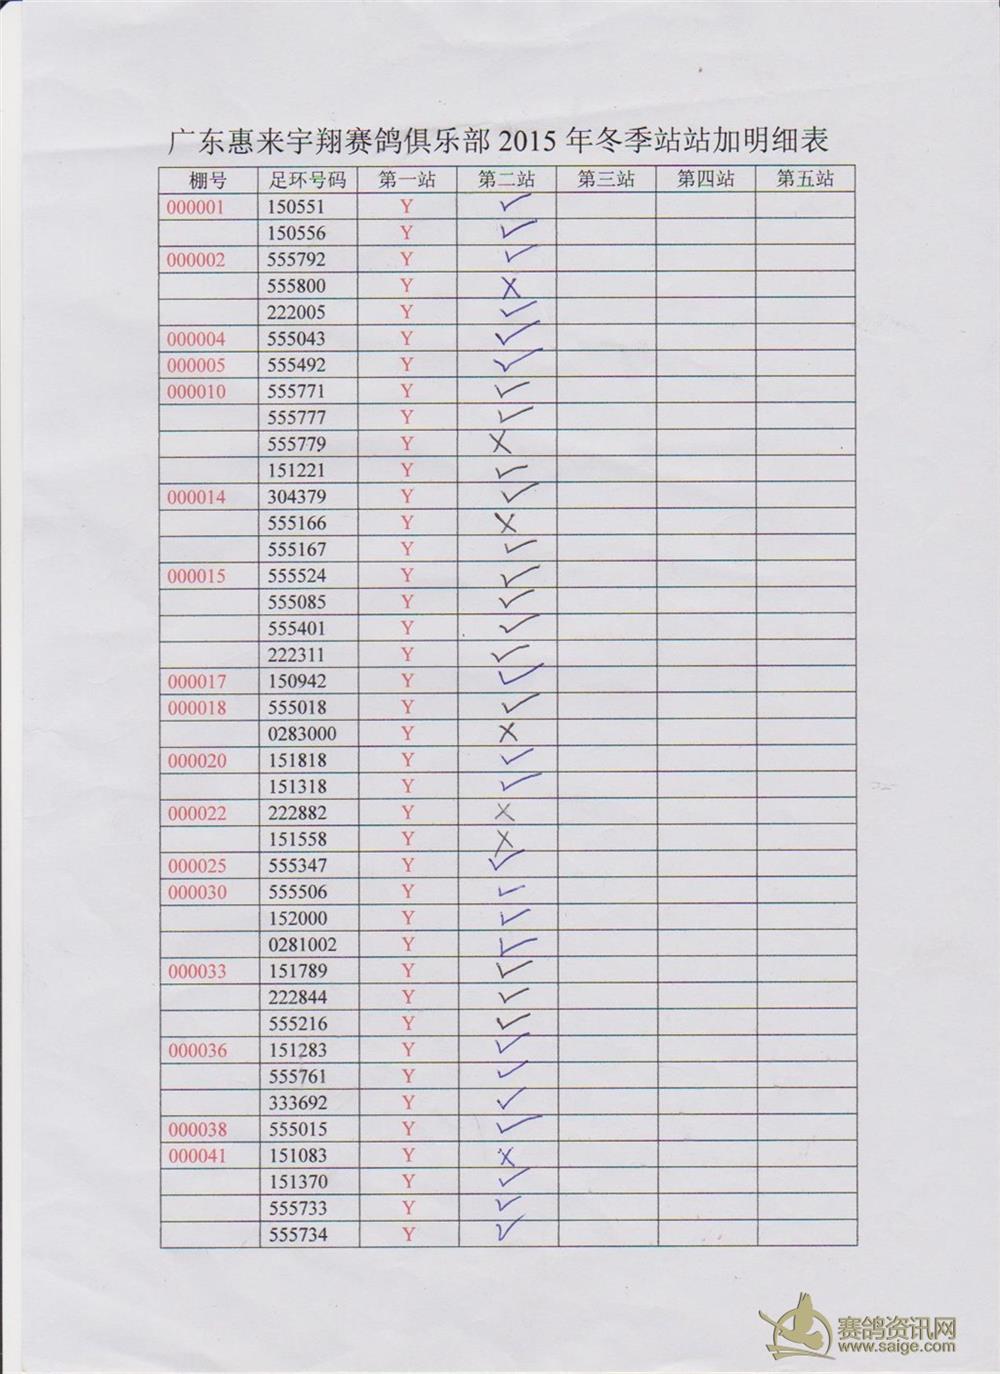 广东惠来宇翔赛鸽俱乐部 2015 年冬季站站加明细表
棚号 足环号码 第一站 第二站 第三站 第四站 第五站
000001 150551 Y ✓
150556 Y ✓
000002 555792 Y ✓
555800 Y ✗
222005 Y ✓
000004 555043 Y ✓
000005 555492 Y ✓
000010 555771 Y ✓
555777 Y ✓
555779 Y ✗
151221 Y ✓
000014 304379 Y ✓
555166 Y ✗
555167 Y ✓
000015 555524 Y ✓
555085 Y ✓
555401 Y ✓
222311 Y ✓
000017 150942 Y ✓
000018 555018 Y ✓
0283000 Y ✗
000020 151818 Y ✓
151318 Y ✓
000022 222882 Y ✗
151558 Y ✗
000025 555347 Y ✓
000030 555506 Y ✓
152000 Y ✓
0281002 Y ✓
000033 151789 Y ✓
222844 Y ✓
555216 Y ✓
000036 151283 Y ✓
555761 Y ✓
333692 Y ✓
000038 555015 Y ✓
000041 151083 Y ✗
151370 Y ✓
555733 Y ✓
555734 Y ✓
赛鸽资讯网
www.saige.com